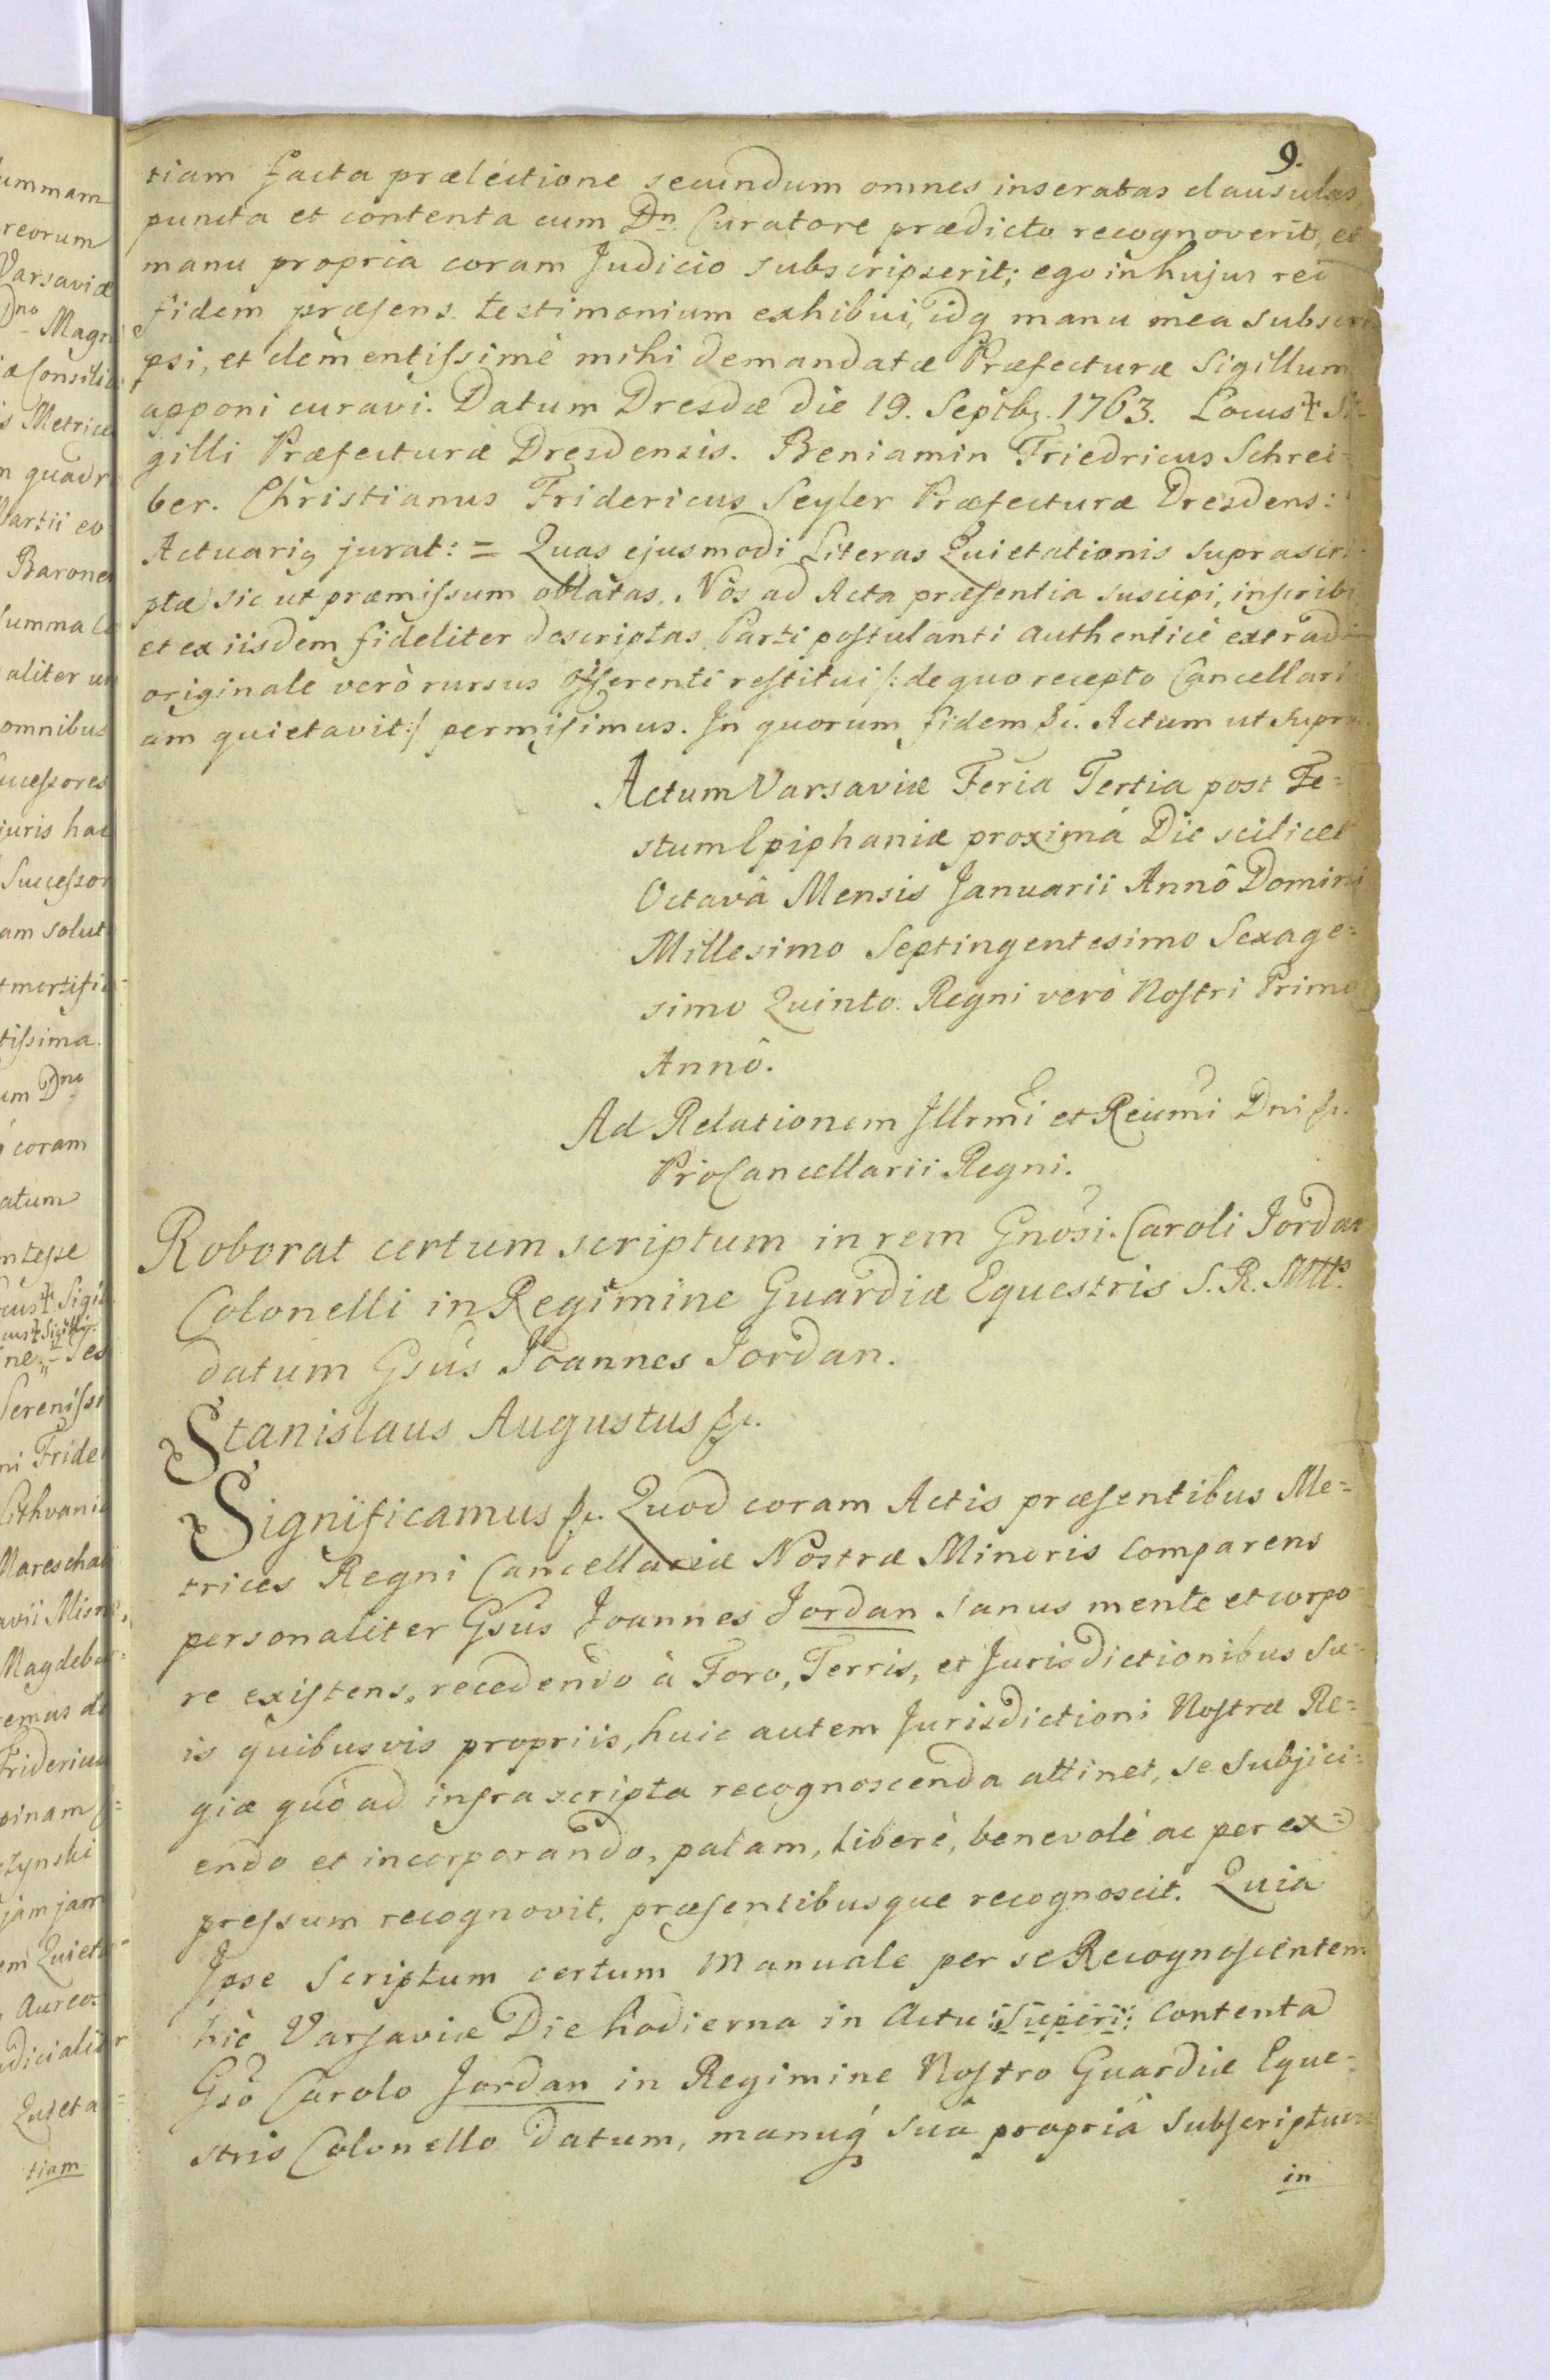 9.
tiam facta prælectione secundum omnes insertas clausulas,
puncta et contenta cum Dn. Curatore prædicto recognoverit, et
manu propria coram Judicio subscripserit; ego in hujus rei
fidem præsens testimonium exhibui, idq manu mea subscri
psi, et clementissimè mihi demandatæ Præfecturæ Sigillum
apponi curavi. Datum Dresdæ die 19. Septbr. 1763. Locus + Si-
gilli Præfecturæ Dresdensis. Beniamin Friedricus Schrei=
ber. Christianus Fridericus Seyler Præfecturæ Dresdens:
Actuariq jurat: = Quas ejusmodi Literas Quietationis suprascri-
ptæ sic ut præmissum oblatas, Nos ad Acta præsentia suscipi, inscribi
et ex iisdem fideliter descriptas Parti postulanti authenticè extradi
originale verò rursus offerenti restitui /: de quo recepto Cancellari
am quietavit :/ permisimus. In quorum fidem &c. Actum ut supra.
Actum Varsaviæ Feria Tertia post Fe=
stum Epiphaniæ proximâ Die scilicet
Octavâ Mensis Januarii Annô Domini
Millesimo Septingentesimo Sexage=
simo Quinto. Regni verò Nostri Primo
Annô.
Ad Relationem Illrmi et Reiumi Dni &c.
ProCancellarii Regni.
Roborat certum scriptum in rem Gnosi. Caroli Jordan
Colonelli in Regimine Guardiæ Equestris S. R. Mttis
datum Gsus Joannes Jordan.
Stanislaus Augustus &c.
Significamus &c. Quod coram Actis præsentibus Me=
trices Regni Cancellariæ Nostræ Minoris Comparens
personaliter Gsus Joannes Jordan sanus mente et corpo=
re existens, recedendo à Foro, Terris, et Jurisdictionibus su=
is quibusvis propriis, huic autem Jurisdictioni Nostræ Re=
giæ quò ad infrascripta recognoscenda attinet, se subjici=
endo et incorporando, palam, liberè, benevolè ac per ex=
pressum recognovit, præsentibusque recognoscit. Quia
Ipse Scriptum certum Manuale per se Recognoscentem
hic Varsaviæ Die hodierna in Actu :Superi: contenta
Gsô Carolo Jordan in Regimine Nostro Guardiæ Eque=
stris Colonello datum, manuq suâ propriâ subscriptum
in